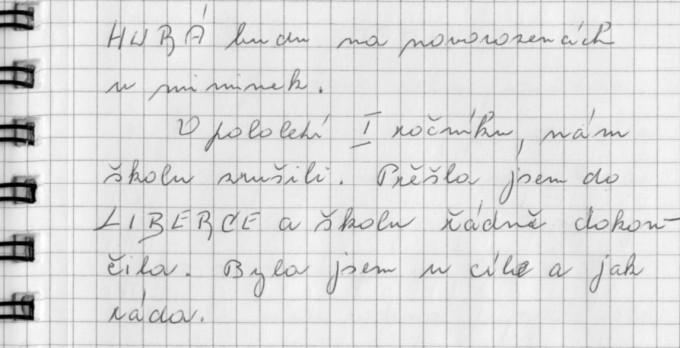 HURÁ budu na novorozencích
u miminek.
V pololetí I ročníku, nám
školu zrušili. Přěšla jsem do
LIBERCE a školu řádně dokon-
čila. Byla jsem u cíle a jak
ráda.